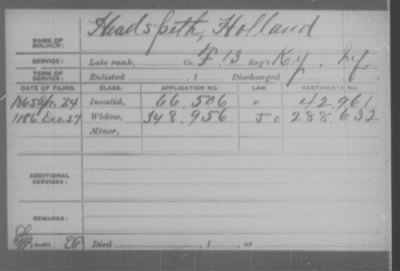 NAME OF SOLDIER: Headspeth, Holland
SERVICE: Late rank, Co. F 13 Reg't Ky. Inf.
TERM OF SERVICE: Enlisted , 1 Discharged
DATE OF FILING. CLASS. APPLICATION NO. LAW. CERTIFICATE NO.
1865 Apr. 24 Invalid, 66.506 " 42.961
1886 Dec 27 Widow, 348.956 J o 288.632
Minor,
ADDITIONAL SERVICES:
REMARKS:
Died , 1 , at